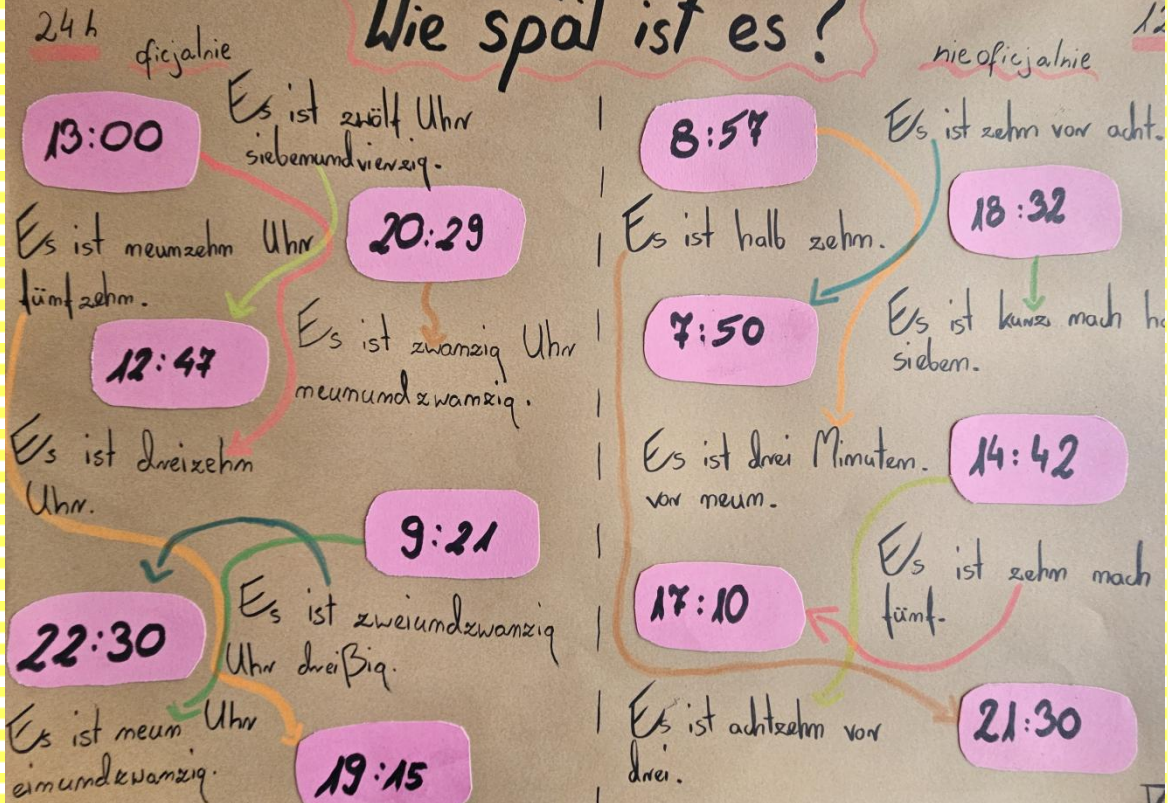 24h
oficjalnie
Wie spät ist es?
nieoficjalnie
12
13:00
Es ist zwölf Uhr
siebenundvierzig.
20:29
Es ist neunzehn Uhr
fünfzehn.
12:47
Es ist zwanzig Uhr
neunundzwanzig.
Es ist dreizehn
Uhr.
9:21
22:30
Es ist zweiundzwanzig
Uhr dreißig.
Es ist neun Uhr
einundzwanzig.
19:15
8:57
Es ist zehn vor acht.
18:32
Es ist halb zehn.
7:50
Es ist kurz nach
sieben.
Es ist drei Minuten.
vor neun.
14:42
Es ist zehn nach
fünf.
17:10
Es ist achtzehn vor
drei.
21:30